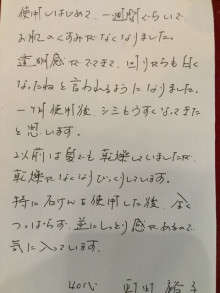 使用しはじめて、一週間ぐらいで
お肌のくすみがなくなりました。
透明感がでてきて、回りからも白く
なったねと言われるようになりました。
一ヶ月使用後、シミもうすくなってきた
と思います。
以前は夏でも乾燥していましたが
乾燥がなくなりびっくりしています。
特に石けんを使用した後、全く
つっぱらず、逆にしっとり感があるので
気に入っています。
40代